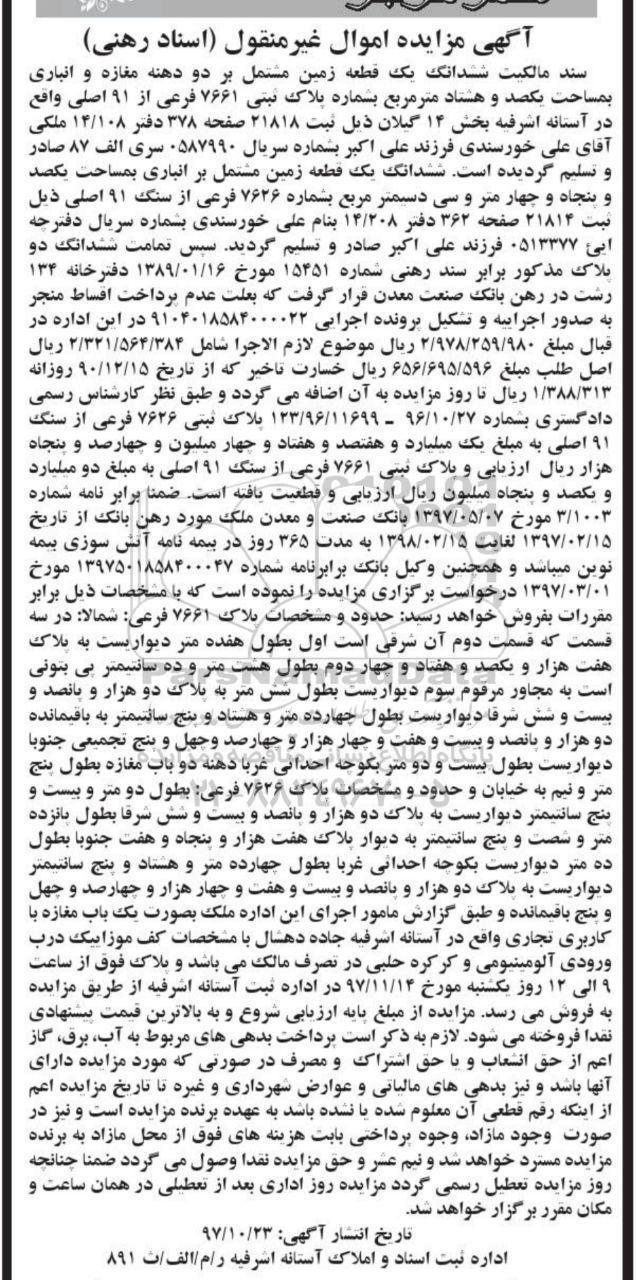 آگهی مزایده اموال غیرمنقول (اسناد رهنی)
سند مالکیت ششدانگ یک قطعه زمین مشتمل بر دو دهنه مغازه و انباری
بمساحت یکصد و هشتاد مترمربع بشماره پلاک ثبتی ۷۶۶۱ فرعی از ۹۱ اصلی واقع
در آستانه اشرفیه بخش ۱۴ گیلان ذیل ثبت ۲۱۸۱۸ صفحه ۳۷۸ دفتر ۱۴/۱۰۸ ملکی
آقای علی خورسندی فرزند علی اکبر بشماره سریال ۰۵۸۷۹۹۰ سری الف ۸۷ صادر
و تسلیم گردیده است. ششدانگ یک قطعه زمین مشتمل بر انباری بمساحت یکصد
و پنجاه و چهار متر و سی دسیمتر مربع بشماره ۷۶۲۶ فرعی از سنگ ۹۱ اصلی ذیل
ثبت ۲۱۸۱۴ صفحه ۳۶۲ دفتر ۱۴/۲۰۸ بنام علی خورسندی بشماره سریال دفترچه
ایئ ۰۵۱۳۳۷۷ فرزند علی اکبر صادر و تسلیم گردید. سپس تمامت ششدانگ دو
پلاک مذکور برابر سند رهنی شماره ۱۵۴۵۱ مورخ ۱۳۸۹/۰۱/۱۶ دفترخانه ۱۳۴
رشت در رهن بانک صنعت معدن قرار گرفت که بعلت عدم پرداخت اقساط منجر
به صدور اجراییه و تشکیل پرونده اجرایی ۹۱۰۴۰۱۸۵۸۴۰۰۰۰۲۲ در این اداره در
قبال مبلغ ۲/۹۷۸/۲۵۹/۹۸۰ ریال موضوع لازم الاجرا شامل ۲/۳۲۱/۵۶۴/۳۸۴ ریال
اصل طلب مبلغ ۶۵۶/۶۹۵/۵۹۶ ریال خسارت تاخیر که از تاریخ ۹۰/۱۲/۱۵ روزانه
۱/۳۸۸/۳۱۳ ریال تا روز مزایده به آن اضافه می گردد و طبق نظر کارشناس رسمی
دادگستری بشماره ۹۶/۱۰/۲۷ ـ ۱۲۳/۹۶/۱۱۶۹۹ پلاک ثبتی ۷۶۲۶ فرعی از سنگ
۹۱ اصلی به مبلغ یک میلیارد و هفتصد و هفتاد و چهار میلیون و چهارصد و پنجاه
هزار ریال ارزیابی و پلاک ثبتی ۷۶۶۱ فرعی از سنگ ۹۱ اصلی به مبلغ دو میلیارد
و یکصد و پنجاه میلیون ریال ارزیابی و قطعیت یافته است. ضمنا برابر نامه شماره
۳/۱۰۰۳ مورخ ۱۳۹۷/۰۵/۰۷ بانک صنعت و معدن ملک مورد رهن بانک از تاریخ
۱۳۹۷/۰۲/۱۵ لغایت ۱۳۹۸/۰۲/۱۵ به مدت ۳۶۵ روز در بیمه نامه آتش سوزی بیمه
نوین میباشد و همچنین وکیل بانک برابرنامه شماره ۱۳۹۷۵۰۱۸۵۸۴۰۰۰۴۷ مورخ
۱۳۹۷/۰۳/۰۱ درخواست برگزاری مزایده را نموده است که با مشخصات ذیل برابر
مقررات بفروش خواهد رسید: حدود و مشخصات پلاک ۷۶۶۱ فرعی: شمالا: در سه
قسمت که قسمت دوم آن شرقی است اول بطول هفده متر دیواریست به پلاک
هفت هزار و یکصد و هفتاد و چهار دوم بطول هشت متر و ده سانتیمتر پی بتونی
است به مجاور مرقوم سوم دیواریست بطول شش متر به پلاک دو هزار و پانصد و
بیست و شش شرقا دیواریست بطول چهارده متر و هشتاد و پنج سانتیمتر به باقیمانده
دو هزار و پانصد و بیست و هفت و چهار هزار و چهارصد وچهل و پنج تجمیعی جنوبا
دیواریست بطول بیست و دو متر بکوچه احداثی غربا دهنه دو باب مغازه بطول پنج
متر و نیم به خیابان و حدود و مشخصات پلاک ۷۶۲۶ فرعی: بطول دو متر و بیست و
پنج سانتیمتر دیواریست به پلاک دو هزار و پانصد و بیست و شش شرقا بطول پانزده
متر و شصت و پنج سانتیمتر به دیوار پلاک هفت هزار و پنجاه و هفت جنوبا بطول
ده متر دیواریست بکوچه احداثی غربا بطول چهارده متر و هشتاد و پنج سانتیمتر
دیواریست به پلاک دو هزار و پانصد و بیست و هفت و چهار هزار و چهارصد و چهل
و پنج باقیمانده و طبق گزارش مامور اجرای این اداره ملک بصورت یک باب مغازه با
کاربری تجاری واقع در آستانه اشرفیه جاده دهشال با مشخصات کف موزاییک درب
ورودی آلومینیومی و کرکره حلبی در تصرف مالک می باشد و پلاک فوق از ساعت
۹ الی ۱۲ روز یکشنبه مورخ ۹۷/۱۱/۱۴ در اداره ثبت آستانه اشرفیه از طریق مزایده
به فروش می رسد. مزایده از مبلغ پایه ارزیابی شروع و به بالاترین قیمت پیشنهادی
نقدا فروخته می شود. لازم به ذکر است پرداخت بدهی های مربوط به آب، برق، گاز
اعم از حق انشعاب و یا حق اشتراک و مصرف در صورتی که مورد مزایده دارای
آنها باشد و نیز بدهی های مالیاتی و عوارض شهرداری و غیره تا تاریخ مزایده اعم
از اینکه رقم قطعی آن معلوم شده یا نشده باشد به عهده برنده مزایده است و نیز در
صورت وجود مازاد، وجوه پرداختی بابت هزینه های فوق از محل مازاد به برنده
مزایده مسترد خواهد شد و نیم عشر و حق مزایده نقدا وصول می گردد ضمنا چنانچه
روز مزایده تعطیل رسمی گردد مزایده روز اداری بعد از تعطیلی در همان ساعت و
مکان مقرر برگزار خواهد شد.
تاریخ انتشار آگهی: ۹۷/۱۰/۲۳
اداره ثبت اسناد و املاک آستانه اشرفیه ر/م/الف/ث ۸۹۱